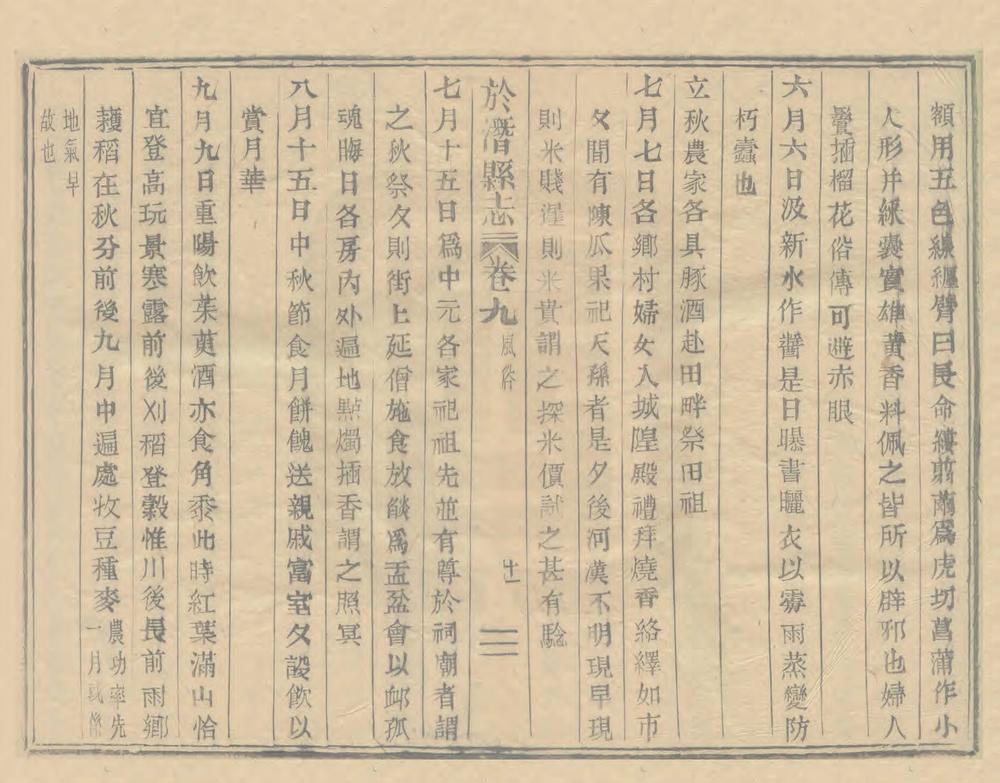 額用五色線纏臂曰長命縷剪繭爲虎切菖蒲作小
人形并絲囊實雄黃香料佩之皆所以辟邪也婦人
鬢揷榴花俗傳可避赤眼
六月六日汲新水作醬是日曝書曬衣以霉雨蒸變防
朽蠹也
立秋農家各具豚酒赴田畔祭田祖
七月七日各鄉村婦女入城隍殿禮拜燒香絡繹如市
夕間有陳瓜果祀天孫者是夕後河漢不明現早現
則米賤遲則米貴謂之探米價試之甚有驗
於潛縣志 卷九 風俗 十一
七月十五日爲中元各家祀祖先並有尊於祠廟者謂
之秋祭夕則街上延僧施食放燄爲盂盆會以卹孤
魂晦日各房內外遍地㸃燭揷香謂之照冥
八月十五日中秋節食月餅餽送親戚富室夕設飲以
賞月華
九月九日重陽飲茱萸酒亦食角黍此時紅葉滿山恰
宜登高玩景寒露前後刈稻登穀惟川後長前兩鄉
穫稻在秋分前後九月中遍處收豆種麥農功率先
一月或條
地氣早
故也